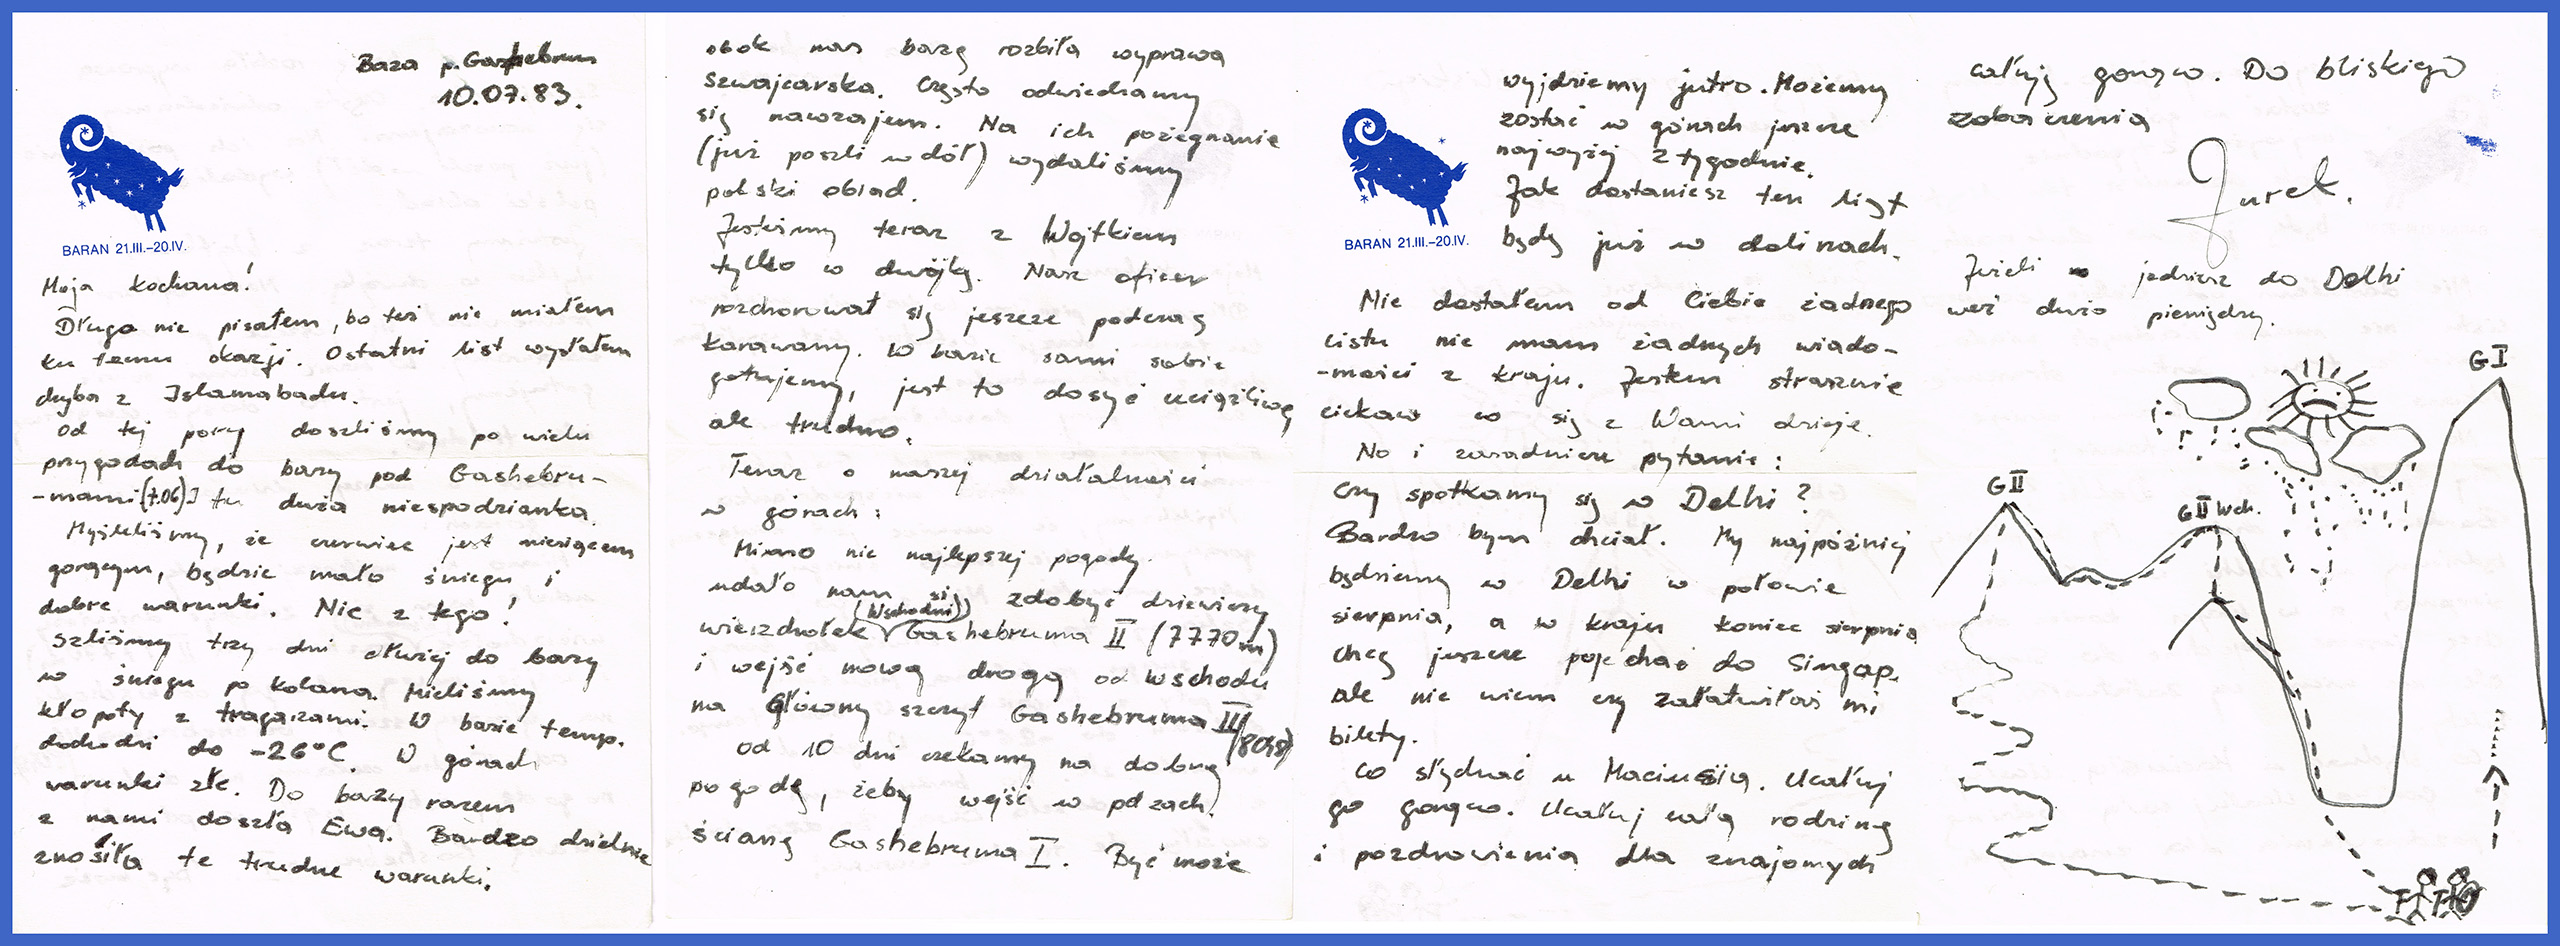 Baza p. Gashebrum
10.07.83.
BARAN 21.III.–20.IV.
Moja kochana!
Długo nie pisałem, bo też nie miałem
ku temu okazji. Ostatni list wysłałem
chyba z Islamabadu.
Od tej pory doszliśmy po wielu
przygodach do bazy pod Gashebru-
-mami (7.06) I tu duża niespodzianka.
Myśleliśmy, że czerwiec jest miesiącem
gorącym, będzie mało śniegu i
dobre warunki. Nic z tego!
Szliśmy trzy dni dłużej do bazy
w śniegu po kolana. Mieliśmy
kłopoty z tragarzami. W bazie temp.
dochodzi do -26°C. W górach
warunki złe. Do bazy razem
z nami doszła Ewa. Bardzo dzielnie
znosiła te trudne warunki.
obok nas bazę rozbiła wyprawa
szwajcarska. Często odwiedzamy
się nawzajem. Na ich pożegnanie
(już poszli w dół) wydaliśmy
polski obiad.
Jesteśmy teraz z Wojtkiem
tylko w dwójkę. Nasz oficer
rozchorował się jeszcze podczas
karawany. W bazie sami sobie
gotujemy, jest to dosyć uciążliwe
ale trudno.
Teraz o naszej działalności
w górach:
Mimo nie najlepszej pogody
udało nam się zdobyć dziewiczy
(Wschodni)
wierzchołek Gashebruma II (7770m)
i wejść nową drogą od wschodu
na Główny szczyt Gashebruma II
(8035)
Od 10 dni czekamy na dobrą
pogodę, żeby wejść w pd zach.
ścianę Gashebruma I. Być może
BARAN 21.III.–20.IV.
wyjdziemy jutro. Możemy
zostać w górach jeszcze
najwyżej 2 tygodnie.
Jak dostaniesz ten list
będę już w dolinach.
Nie dostałem od Ciebie żadnego
listu nie mam żadnych wiado-
-mości z kraju. Jestem strasznie
ciekaw co się z Wami dzieje.
No i zasadnicze pytanie:
czy spotkamy się w Delhi?
Bardzo bym chciał. My najpóźniej
będziemy w Delhi w połowie
sierpnia, a w kraju koniec sierpnia
chcę jeszcze pojechać do Singap.
ale nie wiem czy załatwiłaś mi
bilety.
Co słychać u Maciusia. Ucałuj
go gorąco. Ucałuj całą rodzinę
i pozdrowienia dla znajomych
całuję gorąco. Do bliskiego
zobaczenia
Jurek.
Jeżeli jedziesz do Delhi
weź dużo pieniędzy.
G I
G II
G II Wch.